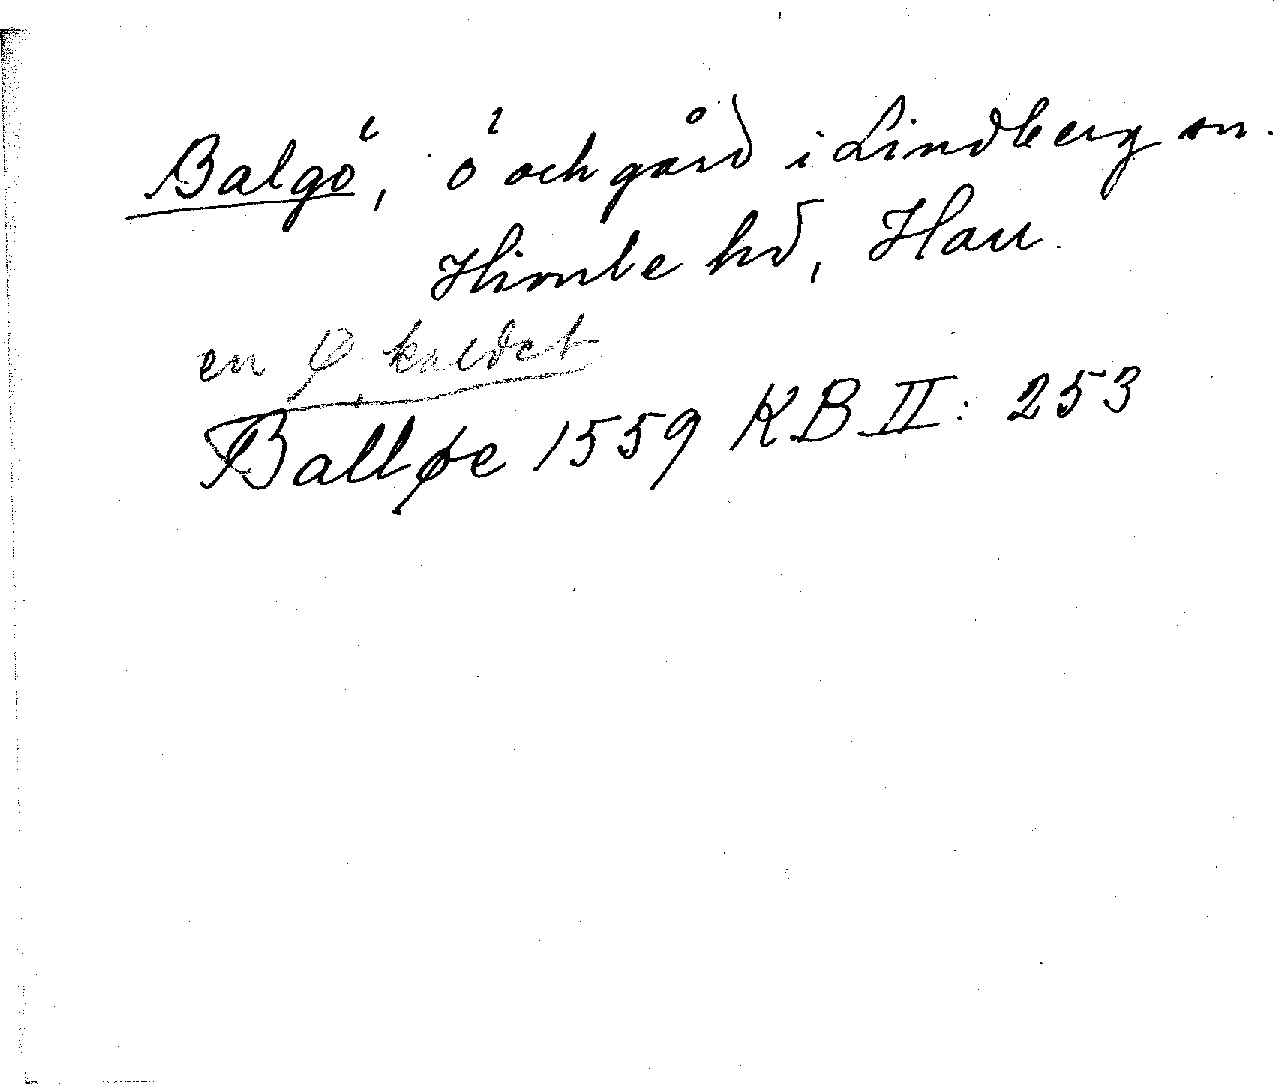 Balgö, ö och gård i Lindberg sn.
Himle hd, Hall.
en Ø kaldet
Balløe 1559 KB II: 253